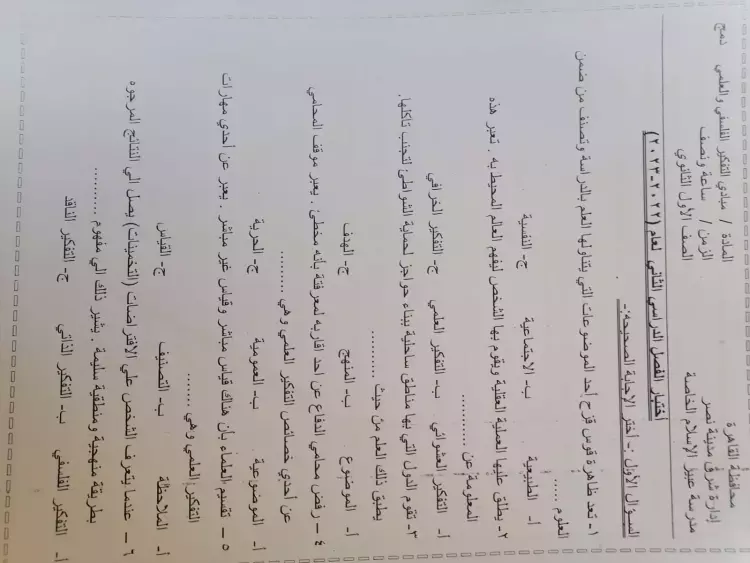 محافظة القاهرة
إدارة شرق مدينة نصر
مدرسة عبير الإسلام الخاصة
المادة / مبادئ التفكير الفلسفي والعلمي دمج
الزمن / ساعة ونصف
الصف الأول الثانوي
أختبار الفصل الدراسي الثاني لعام (٢٠٢٢-٢٠٢٣)
السؤال الأول :- أختر الإجابة الصحيحة:-
١- تعد ظاهرة قوس قزح إحد الموضوعات التي يتناولها العلم بالدراسة وتصنف من ضمن
العلوم .....
أ- الطبيعية ب- الاجتماعية ج- النفسية
٢- يطلق عليها العملية العقلية ويقوم بها الشخص ليفهم العالم المحيط به . تعبر هذه
المعلومة عن ..........
أ- التفكير العشوائي ب- التفكير العلمي ج- التفكير الخرافي
٣- تقوم الدول التي بها مناطق ساحلية ببناء حواجز لحماية الشواطئ لتجنب تأكلها.
يطبق ذلك العلم من حيث ..........
أ- الموضوع ب- المنهج ج- الهدف
٤ – رفض محامي الدفاع عن احد اقاربه لمعرفتة بأنه مخطئ . يعبر موقف المحامي
عن أحدي خصائص التفكير العلمي وهي ..........
أ- الموضوعية ب- العمومية ج- الحرية
٥ – تقسيم العلماء بأن هناك قياس مباشر وقياس غير مباشر . يعبر عن أحدي مهارات
التفكير العلمي وهي ........
أ- الملاحظة ب- التصنيف ج- القياس
٦ – عندما يتعرف الشخص علي الافتراضات (التخمينات) يصل الي النتائج المرجوه
بطريقة منهجية ومنطقية سليمة . يشير ذلك الي مفهوم ..........
أ- التفكير الفلسفي ب- التفكير الذاتي ج- التفكير الناقد